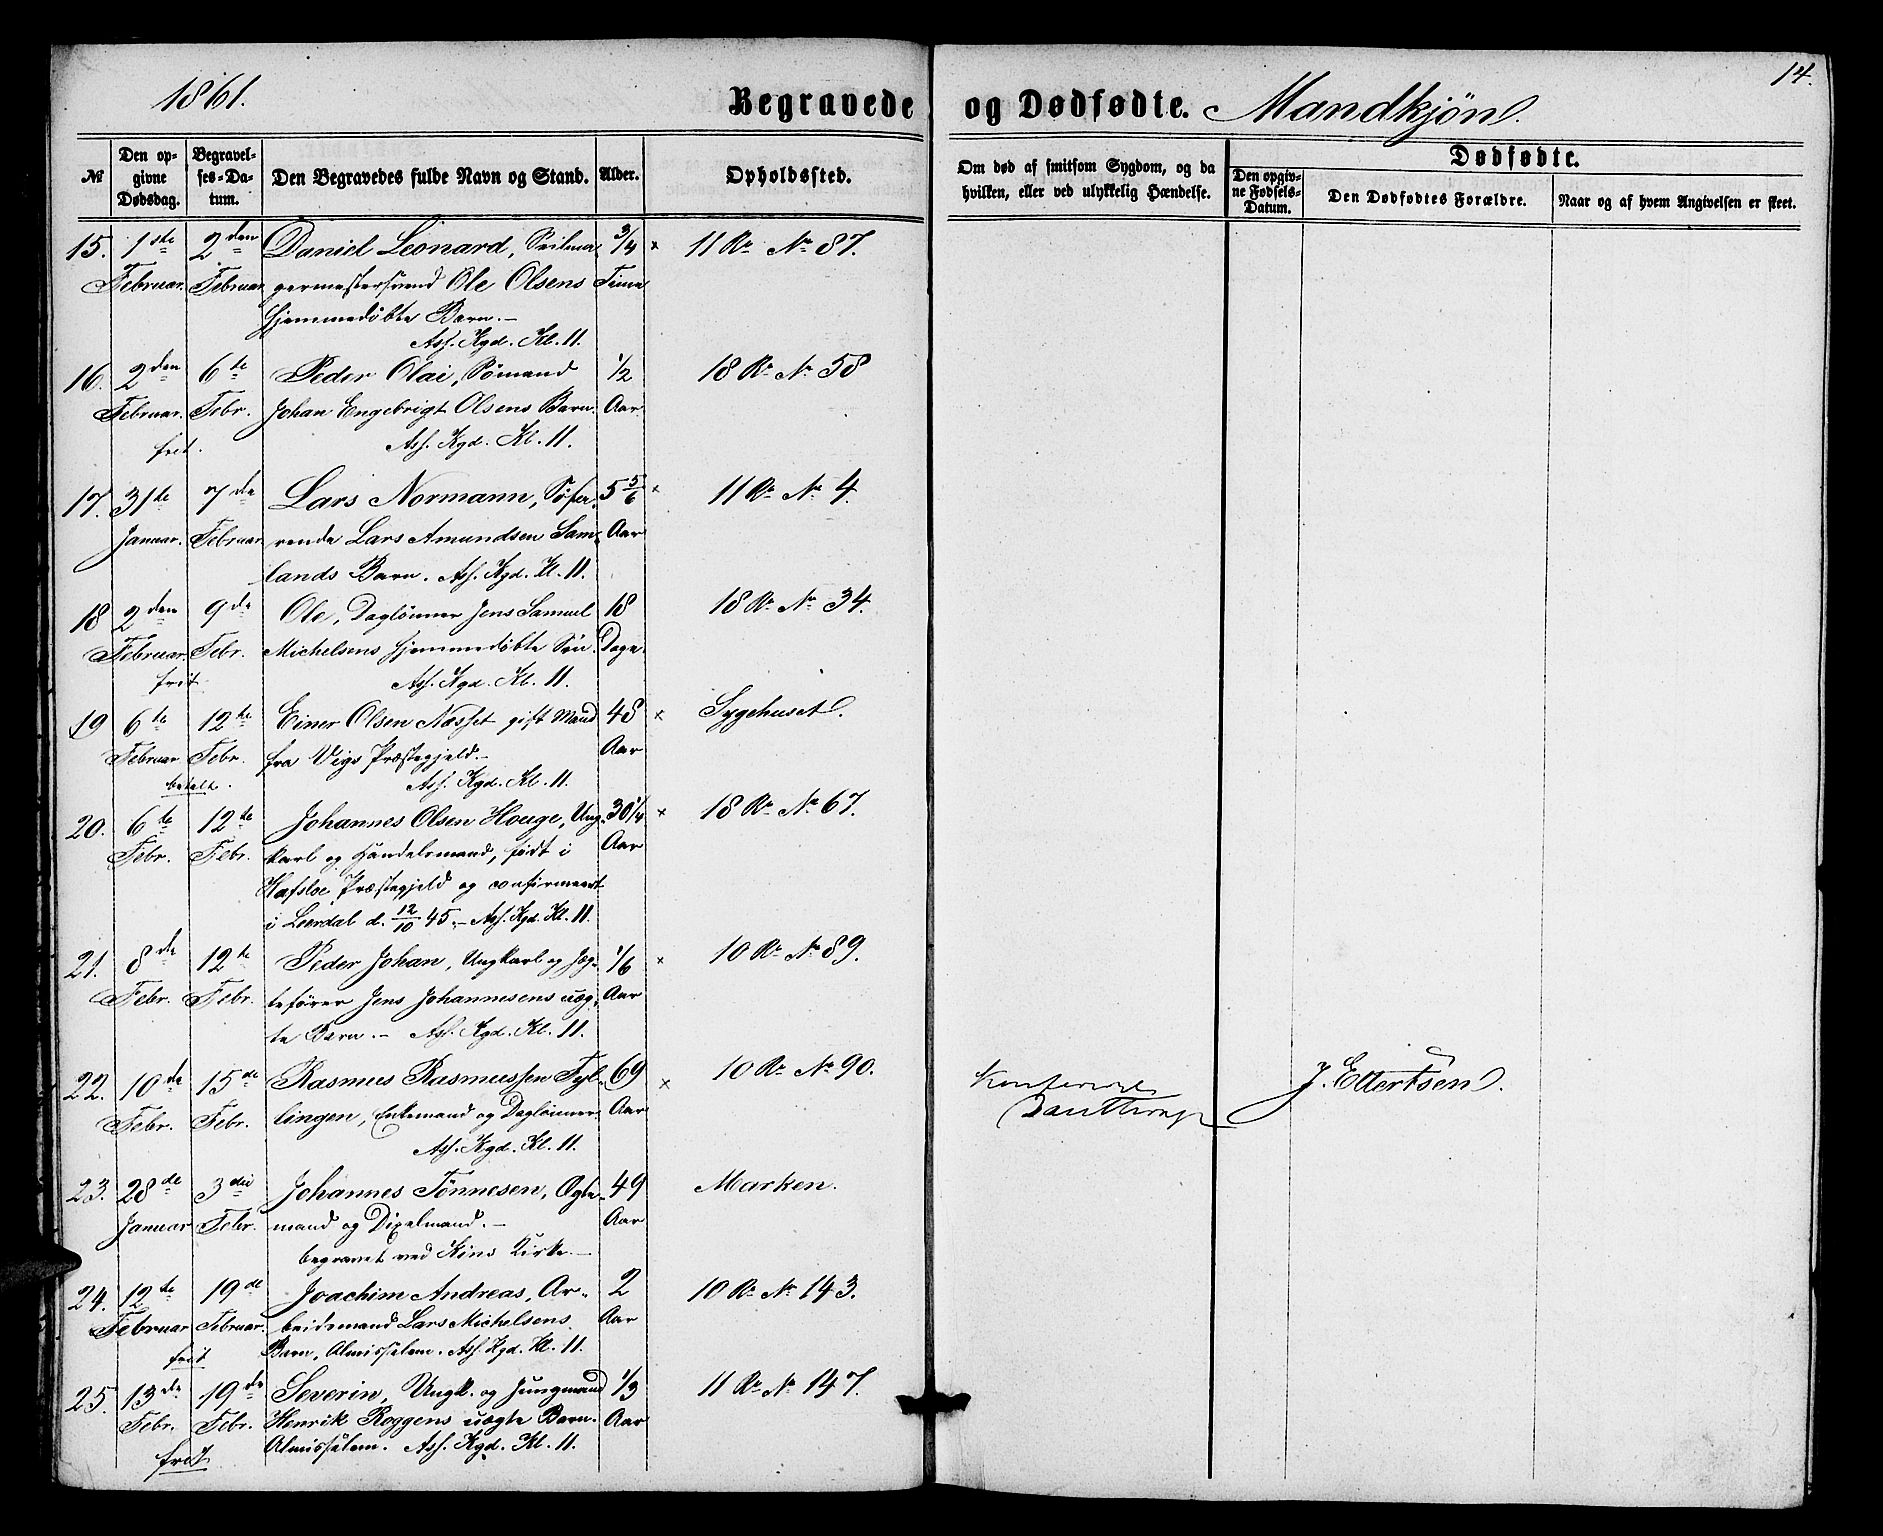 1861.
Begravede og Dødfødte. Mandkjøn.
14.
№
Den opgivne Dødsdag.
Begravelses-Datum.
Den Begravedes fulde Navn og Stand.
Alder.
Opholdssted.
Om død af smitsom Sygdom, og da hvilken, eller ved ulykkelig Hændelse.
Dødfødte.
Den opgivne Fødsels-Datum.
Den Dødfødtes Forældre.
Naar og af hvem Angivelsen er skeet.
15. 1ste 2den Daniel Leonard, 3/4 × 11 R. No 87.
Februar. Februar. Ole Olsens Time
hjemmedøbte Barn.-
Ass. Kgd. Kl. 11.
16. 2den 6te Peder Olai, Sømand 1/2 18 R. No 58
Februar. Febr. Johan Engebrigt Olsens Barn. Aar
frit. Ass. Kgd. Kl. 11.
17. 31te 7de Lars Normann, Søfa- 5 5/6 × 11 R. No 4.
Januar. Februar. rende Lars Amundsen Sam- Aar
lands Barn. Ass. Kgd. Kl. 11.
18 2den 9de Ole, Daglønner Jens Samuel 18 18 R. No 34.
Februar. Febr. Michelsens hjemmedøbte Søn. Dage.
frit Ass. Kgd. Kl. 11.
19 6te 12te Einer Olsen Næsset gift Mand 48 × Sygehuset.
Februar Febr. fra Vigs Præstegjeld.- Aar
betalt. Ass. Kgd. Kl. 11.
20. 6te 12te Johannes Olsen Houge, Ung- 30 1/4 × 18 R. No 67.
Febr. Febr. karl og Handelsmand, født i Aar
Hafsloe Præstegjeld og confirmeert
i Leerdal d. 12/10 45.- Ass. Kgd. Kl. 11.
21. 8de 12te Peder Johan, Ungkarl og Jæg- 1/6 × 10 R. No 89.
Febr. Febr. tefører Jens Johannesens uæg- Aar
te Barn.- Ass. Kgd. Kl. 11.
22. 10de 15de Rasmus Rasmussen Tyl- 69 × 10 R. No 90.
Febr. Febr. lingen, Enkemand og Daglønner Aar
Ass. Kgd. Kl. 11.
J. Ellertsen.
23. 28de 3die Johannes Tønnesen, Ægte- 49 Marken.
Januar Febr. mand og Dixelmand.- Aar
begravet ved Kins Kirke-
24. 12te 19de Joachim Andreas, Ar- 2 10 R. No 143.
Februar Februar. beidsmand Lars Michelsens Aar
frit Barn, Almisselem. Ass. Kgd. Kl. 11.
25. 13de 19de Severin, Ungk. og Jungmand 1/3 11 R. No 147.
Febr. Febr. Henrik Roggens uægte Barn. Aar
frit Almisselem. Ass. Kgd. Kl. 11.